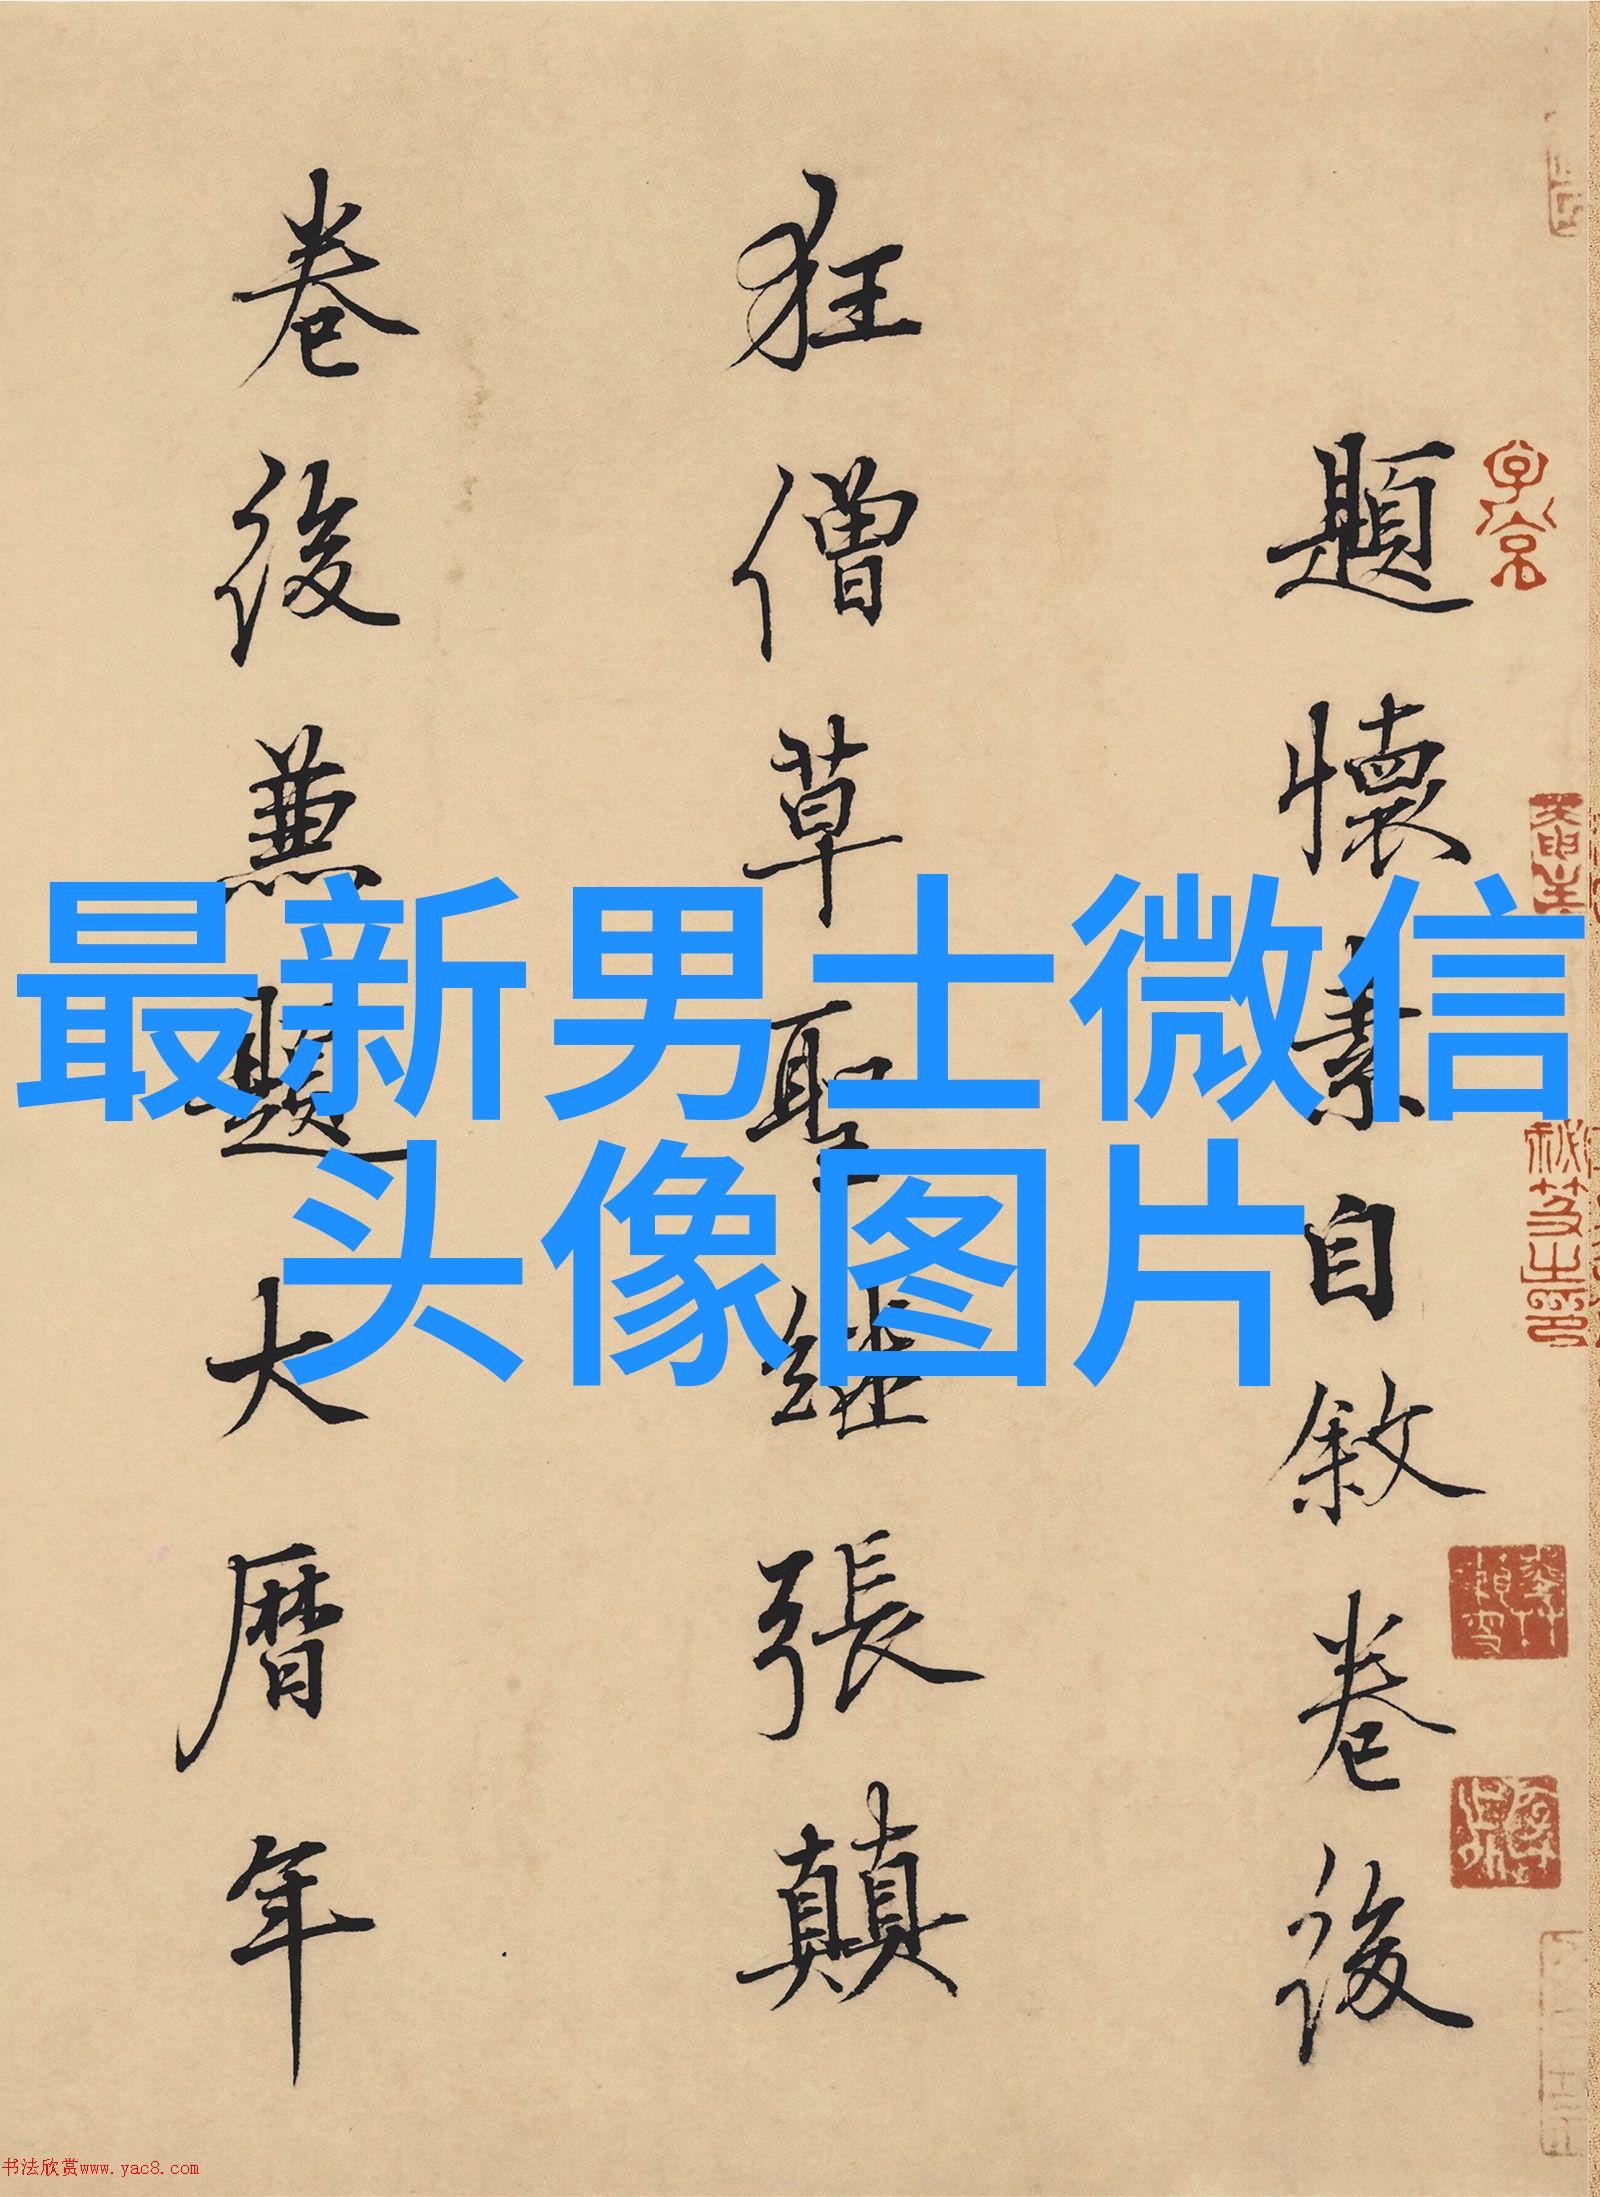 題懷素自敘卷後
狂僧草聖继張顛
卷後兼題大曆年
最新男士微信
头像图片
书法欣赏www.yac8.com